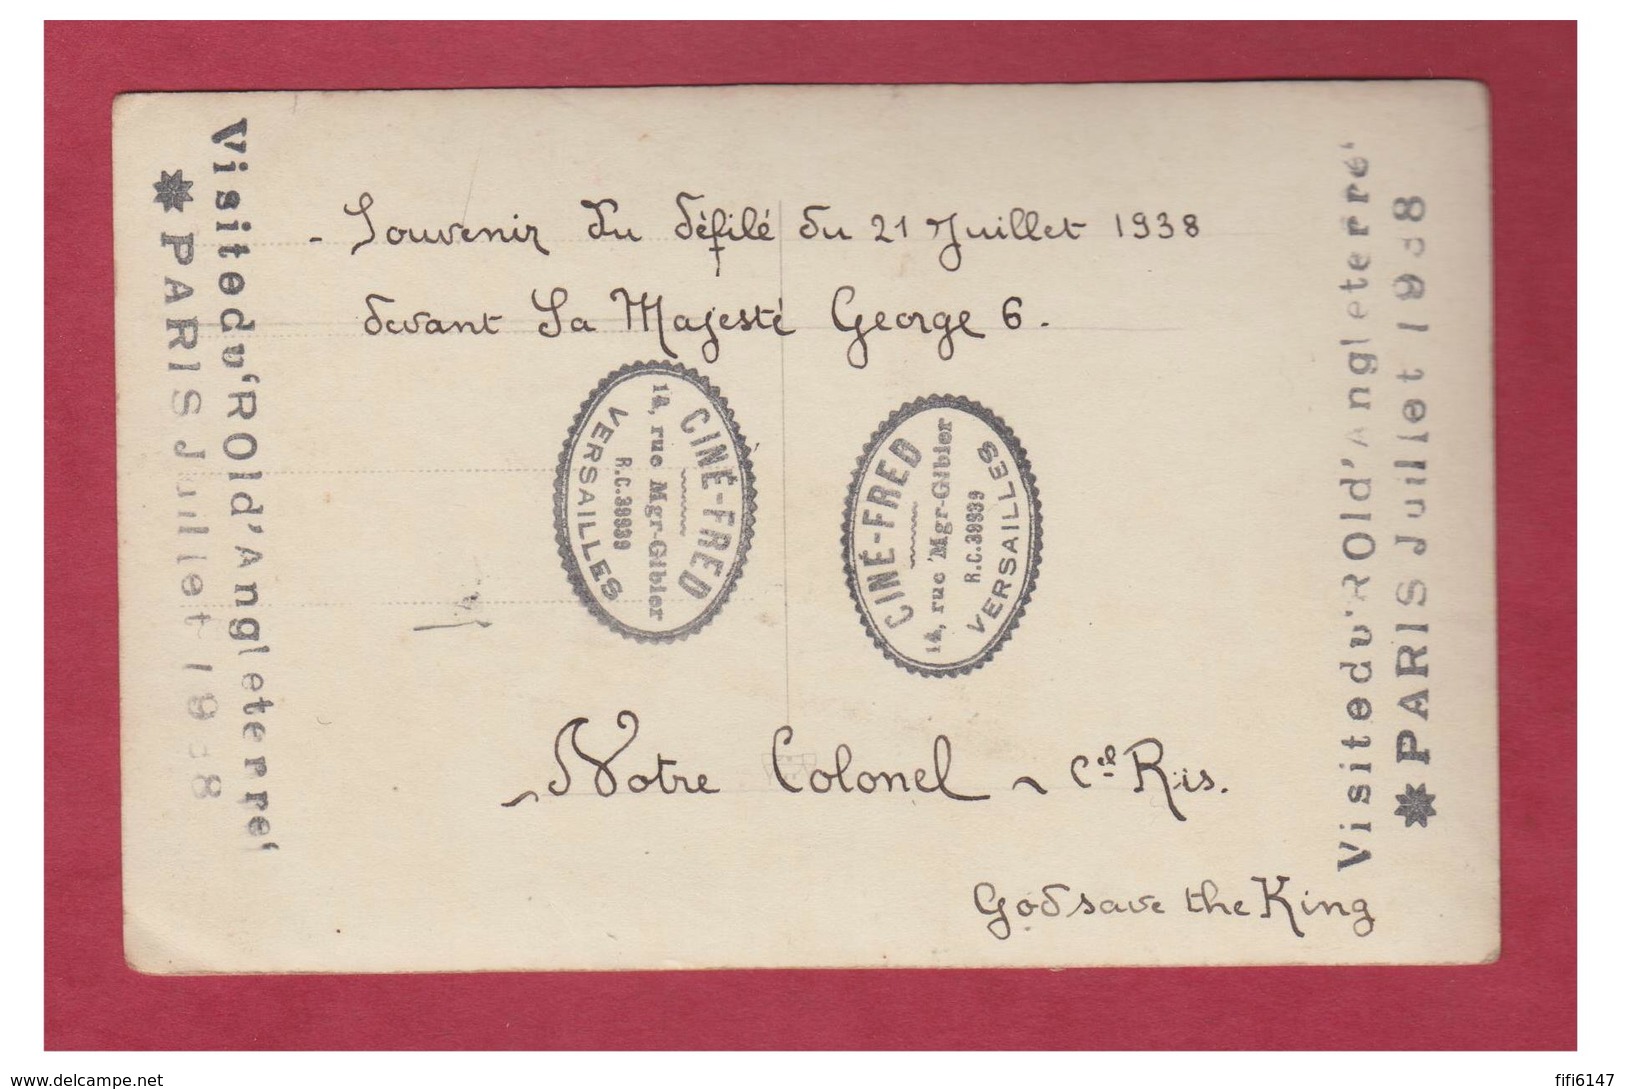 - Souvenir du défilé du 21 Juillet 1938
devant Sa Majesté George 6.
Visite du 'ROI d'Angleterre'
* PARIS Juillet 1938
CINÉ-FRED
14, rue Mgr-Gibier
R.C. 39939
VERSAILLES
CINÉ-FRED
14, rue Mgr-Gibier
R.C. 39939
VERSAILLES
Visite du 'ROI d'Angleterre'
* PARIS Juillet 1938
Notre Colonel ~ Cel Ris.
God save the King
www.delcampe.net
fifi6147